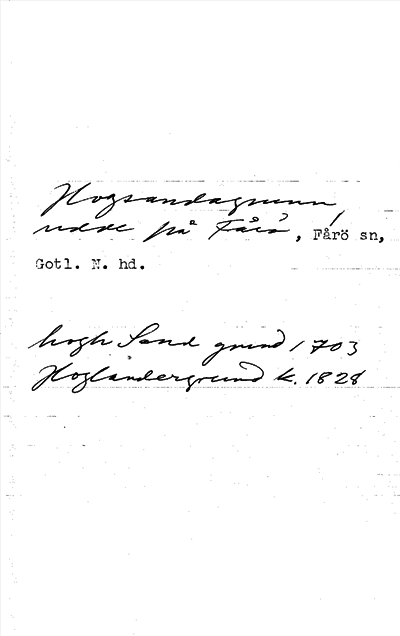 Hogsandagrunn,
udde på Fårö, Fårö sn,
Gotl. N. hd.
hogh Sand grund 1703
Hoglandergrund k. 1828